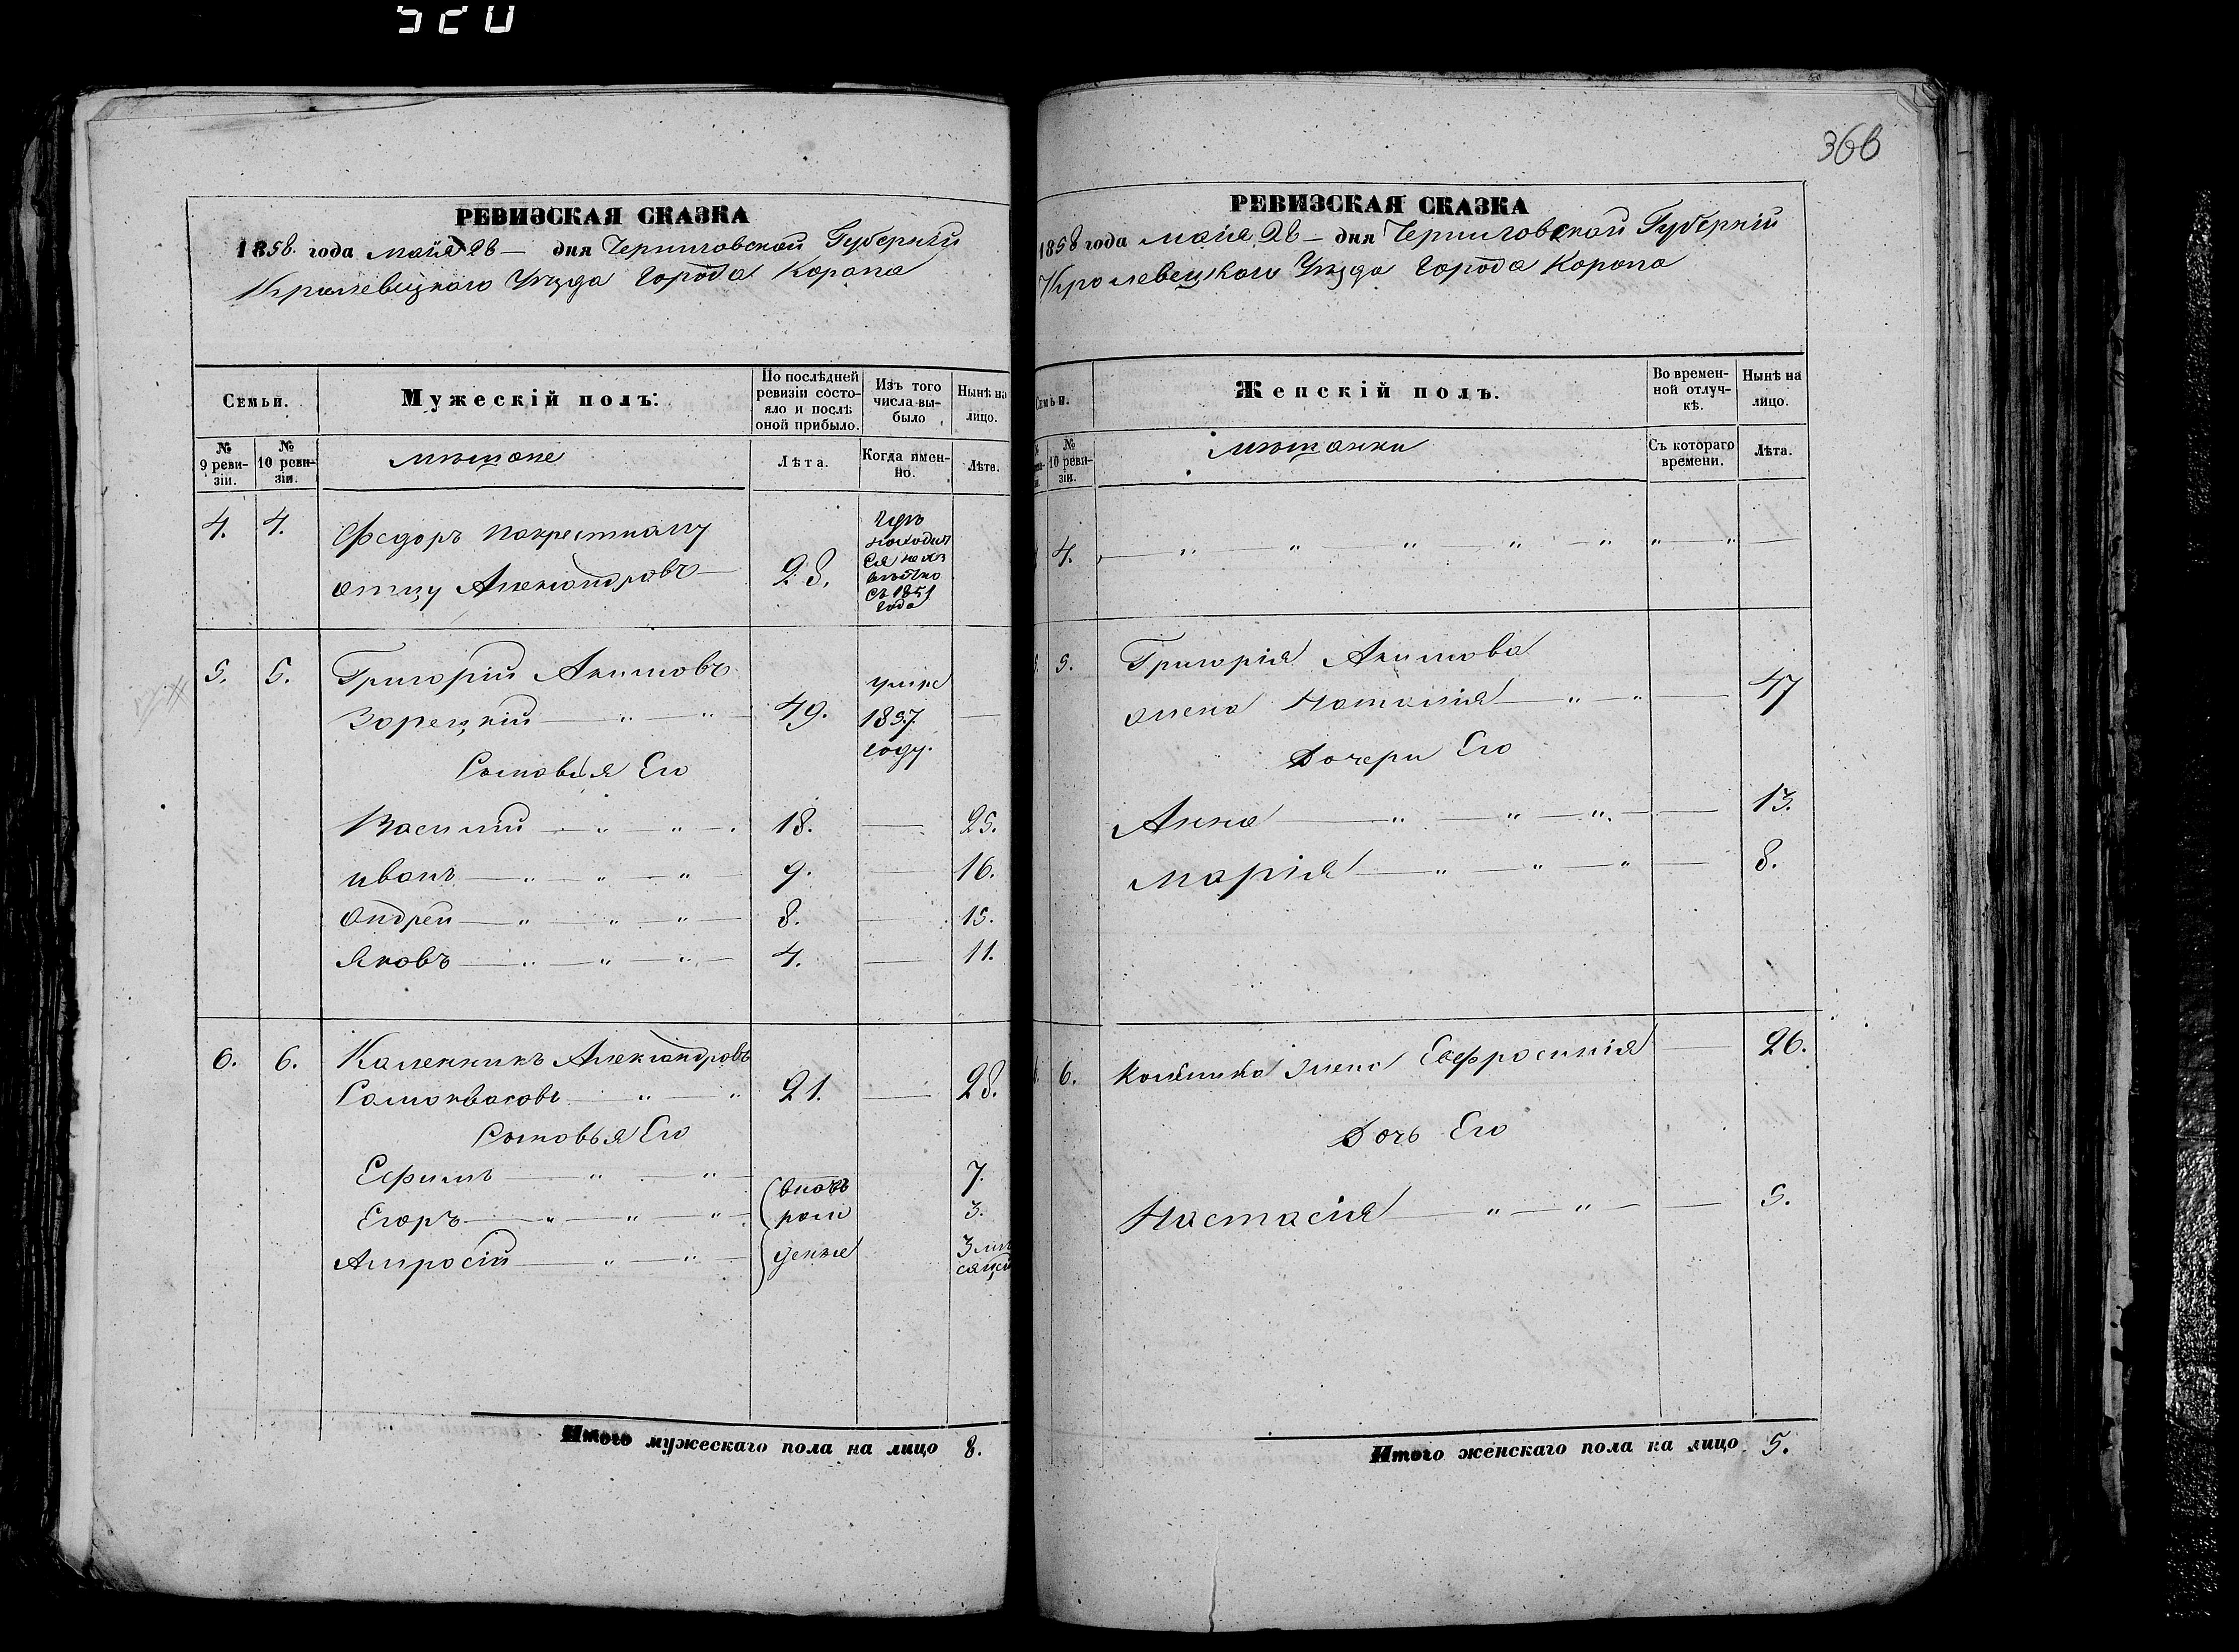 520
366
РЕВИЗСКАЯ СКАЗКА
1858. года майя 26 — дня Черниговской Губерніи
Кролевецкаго Уѣзда Города Коропа
Семьи.
Мужескій полъ:
По послѣдней ревизіи состояло и послѣ оной прибыло.
Изъ того числа выбыло
Нынѣ на лицо.
№ 9 ревизіи.
№ 10 ревизіи.
мѣщане
Лѣта.
Когда именно.
Лѣта.
4. 4. Федоръ по крестному
отцу Александровъ — 28.
гдѣ
находит
ся не из
вѣстно
съ 1851
года
5. 5. Григорій Акимовъ
Зарецкій — " — " — 49. —
умре
1857.
году.
Сыновья Его
Василій — " — " — 18. — 25.
иванъ — " — " — " — 9. — 16.
Андрей — " — " — " — 8. — 15.
Яковъ — " — " — " — 4. — 11.
6. 6. Каленникъ Александровъ
Самоквасовъ — " — " 21. — 28.
Сыновья Его
Ефимъ — " — " — вновь 7.
Егоръ — " — " — " — рож 3.
Амросій — " — " — денные 3 мѣ
сяцев
Итого мужескаго пола на лицо 8.
РЕВИЗСКАЯ СКАЗКА
1858 года майя 26 — дня Черниговской Губерніи
Кролевецкаго Уѣзда Города Коропа
Семьи.
Женскій полъ.
Во временной отлучкѣ.
Нынѣ на лицо.
№ 10 ревизіи.
мѣщанки
Съ котораго времени.
Лѣта.
4. — " — " — " — " — " " — " —
5. Григорія Акимова
жена Наталія — " — " — 47
Дочери Его
Анна — " — " — " — 13.
Марія — " — " — " — 8.
6. жена Евфросинія — 26.
Дочь Его
Настасія — " — " — — 5.
Итого женскаго пола на лицо 5.